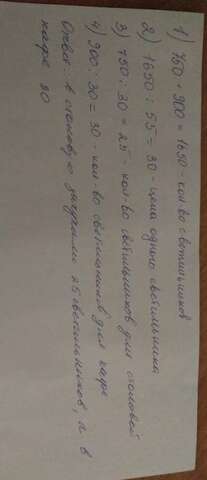 1) 750 + 900 = 1650 - кол во светильников
2) 1650 : 55 = 30 - цена одного светильника
3) 750 : 30 = 25 - кол во светильников для столовой
4) 900 : 30 = 30 - кол-во светильников для кафе
Ответ: в столовую закупили 25 светильников, а в
кафе 30